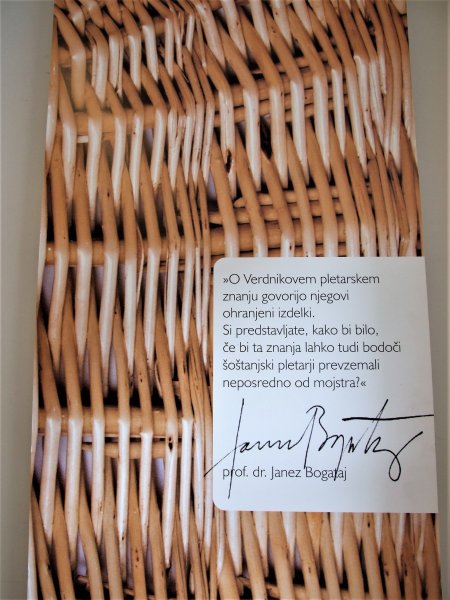 »O Verdnikovem pletarskem
znanju govorijo njegovi
ohranjeni izdelki.
Si predstavljate, kako bi bilo,
če bi ta znanja lahko tudi bodoči
šoštanjski pletarji prevzemali
neposredno od mojstra?«
Janez Bogataj
prof. dr. Janez Bogataj